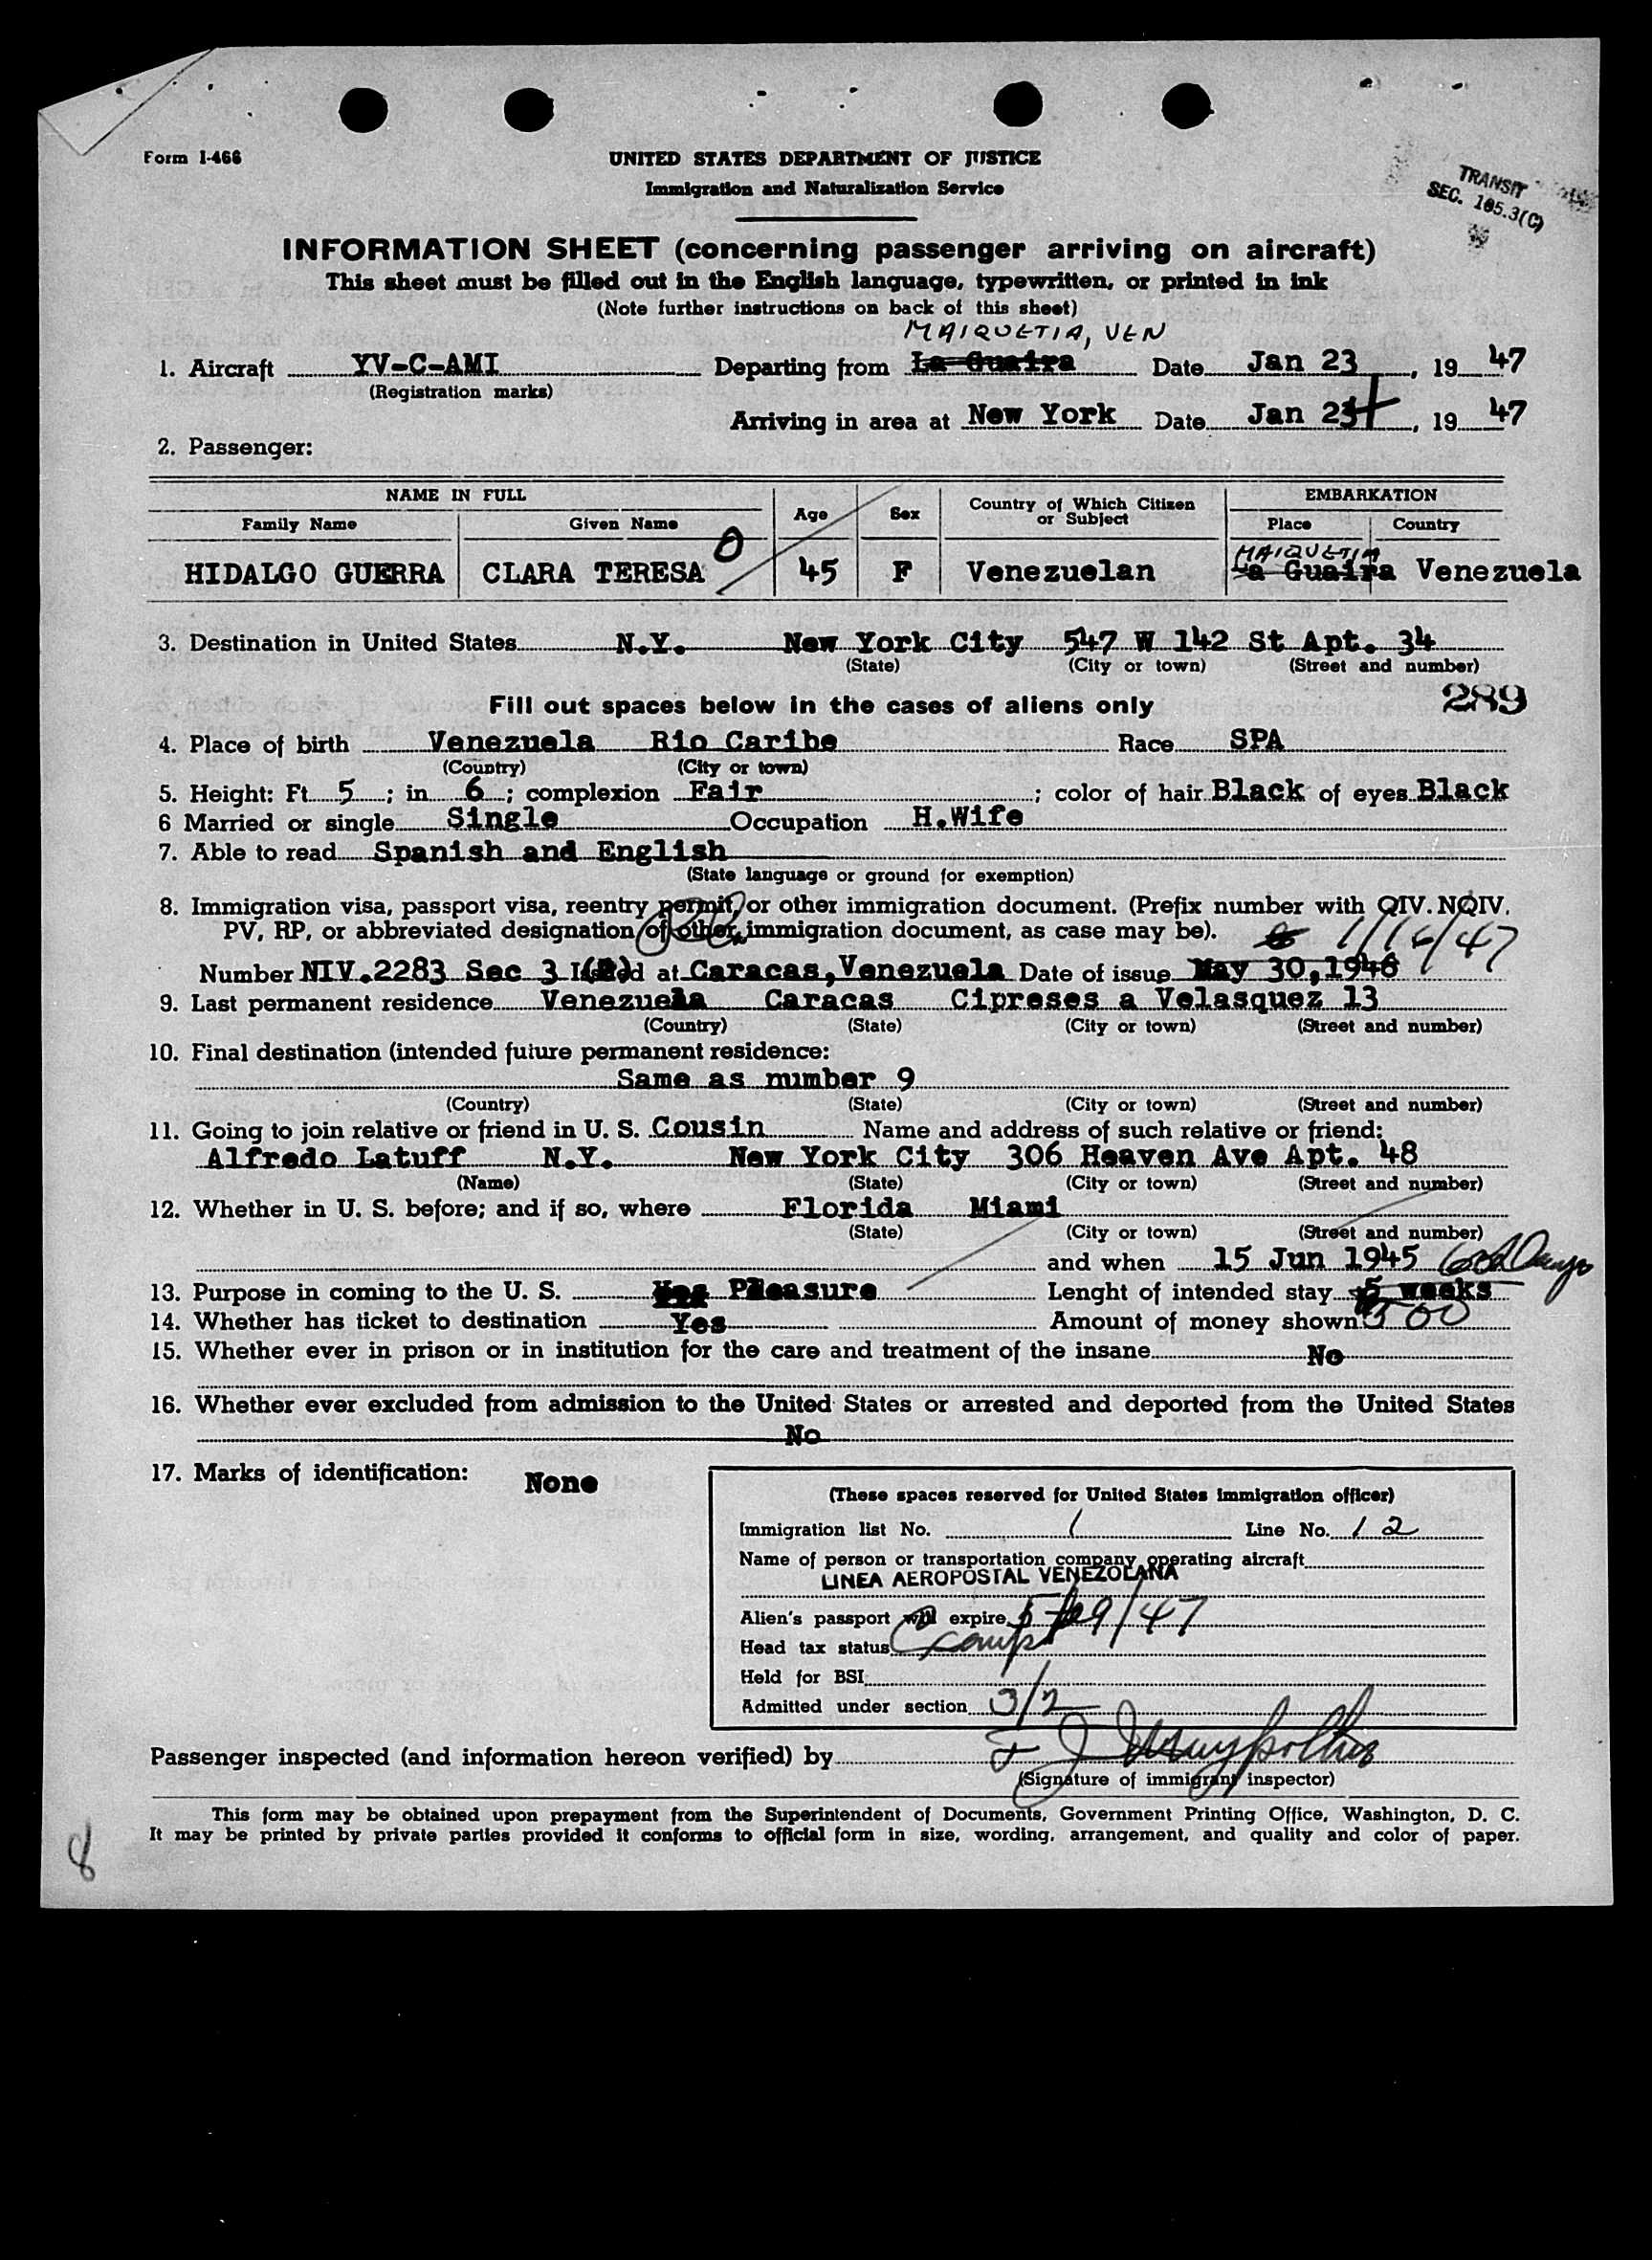 Form I-466
UNITED STATES DEPARTMENT OF JUSTICE
Immigration and Naturalization Service
TRANSIT
SEC. 105.3(C)
INFORMATION SHEET (concerning passenger arriving on aircraft)
This sheet must be filled out in the English language, typewritten, or printed in ink
(Note further instructions on back of this sheet)
MAIQUETIA, VEN
1. Aircraft YV-C-AMI Departing from La Guaira Date Jan 23, 19 47
(Registration marks)
Arriving in area at New York Date Jan 24, 19 47
2. Passenger:
NAME IN FULL Age Sex Country of Which Citizen or Subject EMBARKATION
Family Name Given Name Place Country
MAIQUETIA
HIDALGO GUERRA CLARA TERESA 45 F Venezuelan La Guaira Venezuela
3. Destination in United States N.Y. New York City 547 W 142 St Apt. 34
(State) (City or town) (Street and number)
Fill out spaces below in the cases of aliens only 289
4. Place of birth Venezuela Rio Caribe Race SPA
(Country) (City or town)
5. Height: Ft. 5; in. 6; complexion Fair; color of hair Black of eyes Black
6 Married or single Single Occupation H.Wife
7. Able to read Spanish and English
(State language or ground for exemption)
8. Immigration visa, passport visa, reentry permit, or other immigration document. (Prefix number with QIV. NQIV.
PV, RP, or abbreviated designation of other immigration document, as case may be). 1/16/47
Number NIV.2283 Sec 3 (2) Issued at Caracas, Venezuela Date of issue May 30, 1946
9. Last permanent residence Venezuela Caracas Cipreses a Velasquez 13
(Country) (State) (City or town) (Street and number)
10. Final destination (intended future permanent residence:
Same as number 9
(Country) (State) (City or town) (Street and number)
11. Going to join relative or friend in U. S. Cousin Name and address of such relative or friend:
Alfredo Latuff N.Y. New York City 306 Heaven Ave Apt. 48
(Name) (State) (City or town) (Street and number)
12. Whether in U. S. before; and if so, where Florida Miami
(State) (City or town) (Street and number)
and when 15 Jun 1945
13. Purpose in coming to the U. S. Pleasure Lenght of intended stay 5 weeks
14. Whether has ticket to destination Yes Amount of money shown 500
15. Whether ever in prison or in institution for the care and treatment of the insane No
16. Whether ever excluded from admission to the United States or arrested and deported from the United States
No
17. Marks of identification: None
(These spaces reserved for United States immigration officer)
Immigration list No. 1 Line No. 12
Name of person or transportation company operating aircraft
LINEA AEROPOSTAL VENEZOLANA
Alien's passport will expire 5/29/47
Head tax status Exempt
Held for BSI
Admitted under section 3/2
Passenger inspected (and information hereon verified) by
(Signature of immigrant inspector)
This form may be obtained upon prepayment from the Superintendent of Documents, Government Printing Office, Washington, D. C.
It may be printed by private parties provided it conforms to official form in size, wording, arrangement, and quality and color of paper.
8